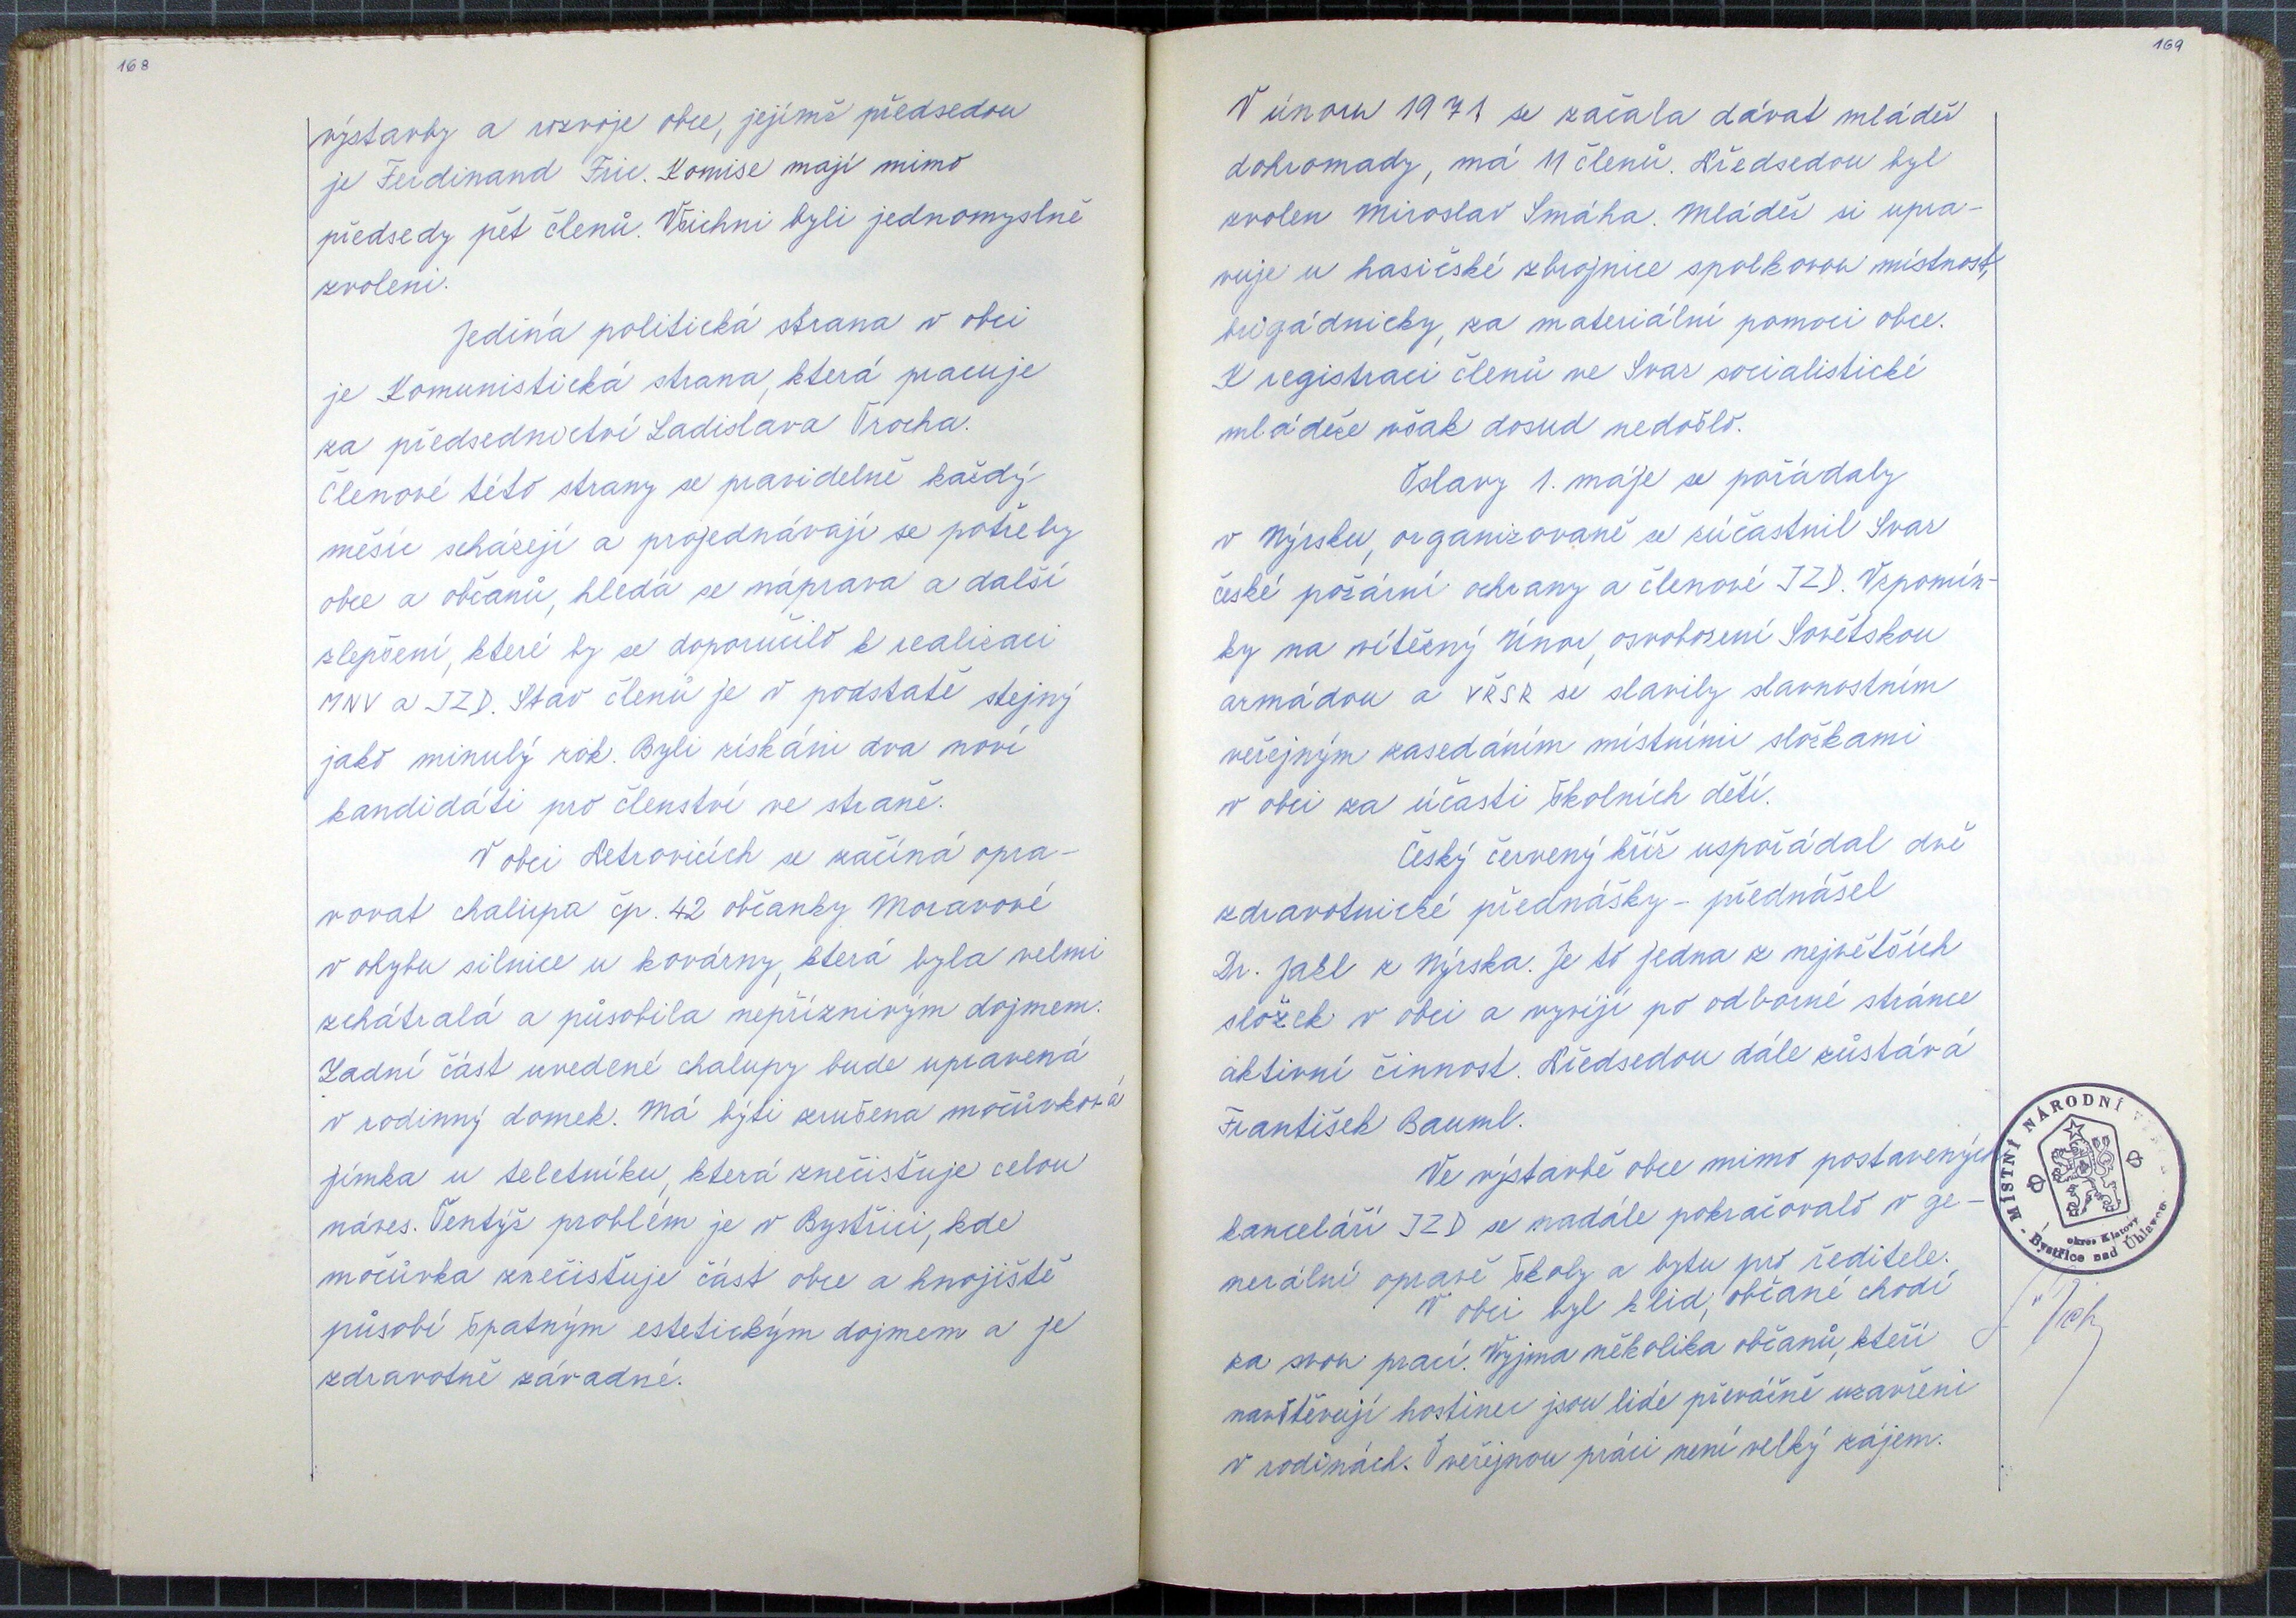 168
výstavby a rozvoje obce, jejímž předsedou
je Ferdinand Fric. Komise mají mimo
předsedy pět členů. Všichni byli jednomyslně
zvoleni.
Jediná politická strana v obci
je Komunistická strana, která pracuje
za předsednictví Ladislava Trocha.
Členové této strany se pravidelně každý
měsíc scházejí a projednávají se potřeby
obce a občanů, hledá se náprava a další
zlepšení, které by se doporučilo k realizaci
MNV a JZD. Stav členů je v podstatě stejný
jako minulý rok. Byli získáni dva noví
kandidáti pro členství ve straně.
V obci Petrovicích se začíná opra-
vovat chalupa čp. 42 občanky Moravové
v ohybu silnice u kovárny, která byla velmi
zchátralá a působila nepříznivým dojmem.
Zadní část uvedené chalupy bude upravená
v rodinný domek. Má býti zrušena močůvková
jímka u teletníku, která znečisťuje celou
náves. Tentýž problém je v Bystřici, kde
močůvka znečisťuje část obce a hnojiště
působí špatným estetickým dojmem a je
zdravotně závadné.
169
V únoru 1971 se začala dávat mládež
dohromady, má 11 členů. Předsedou byl
zvolen Miroslav Smáha. Mládež si upra-
vuje u hasičské zbrojnice spolkovou místnost,
brigádnicky, za materiální pomoci obce.
K registraci členů ve Svaz socialistické
mládeže však dosud nedošlo.
Oslavy 1. máje se pořádaly
v Nýrsku, organizovaně se zúčastnil Svaz
české požární ochrany a členové JZD. Vzpomín-
ky na vítězný Únor, osvobození Sovětskou
armádou a VŘSR se slavily slavnostním
veřejným zasedáním místními složkami
v obci za účasti školních dětí.
Český červený kříž uspořádal dvě
zdravotnické přednášky - přednášel
Dr. Jakl z Nýrska. Je to jedna z největších
složek v obci a vyvíjí po odborné stránce
aktivní činnost. Předsedou dále zůstává
František Bauml.
Ve výstavbě obce mimo postavených
kanceláří JZD se nadále pokračovalo v ge-
nerální opravě školy a bytu pro ředitele.
V obci byl klid, občané chodí
za svou prací. Vyjma několika občanů, kteří
navštěvují hostinec jsou lidé převážně uzavřeni
v rodinách. O veřejnou práci není velký zájem.
MÍSTNÍ NÁRODNÍ
okres Klatovy
Bystřice nad Úhlavou